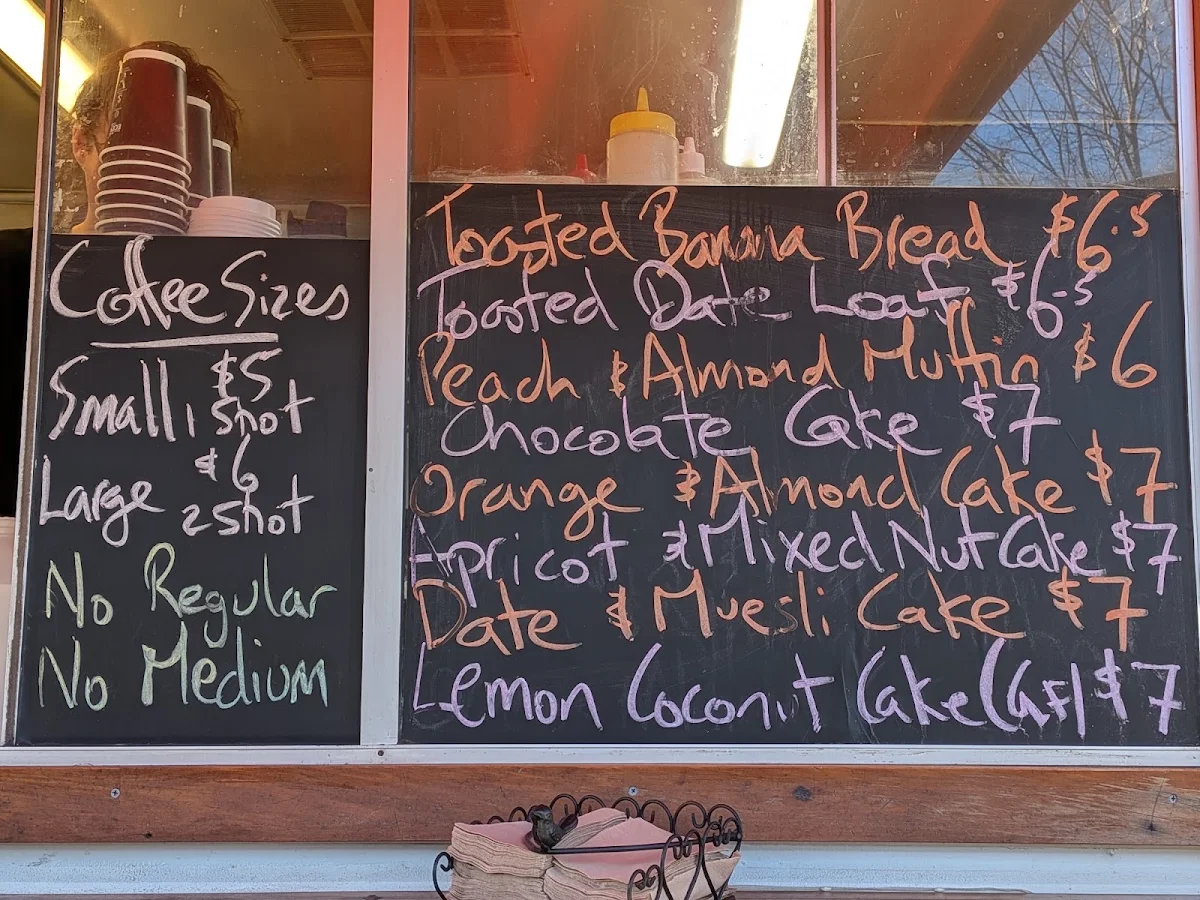 Coffee Sizes
Small, $5
1 shot
Large $6
2 shot
No Regular
No Medium
Toasted Banana Bread $6.5
Toasted Date Loaf $6.5
Peach & Almond Muffin $6
Chocolate Cake $7
Orange & Almond Cake $7
Apricot & Mixed Nut Cake $7
Date & Muesli Cake $7
Lemon Coconut Cake (GF) $7